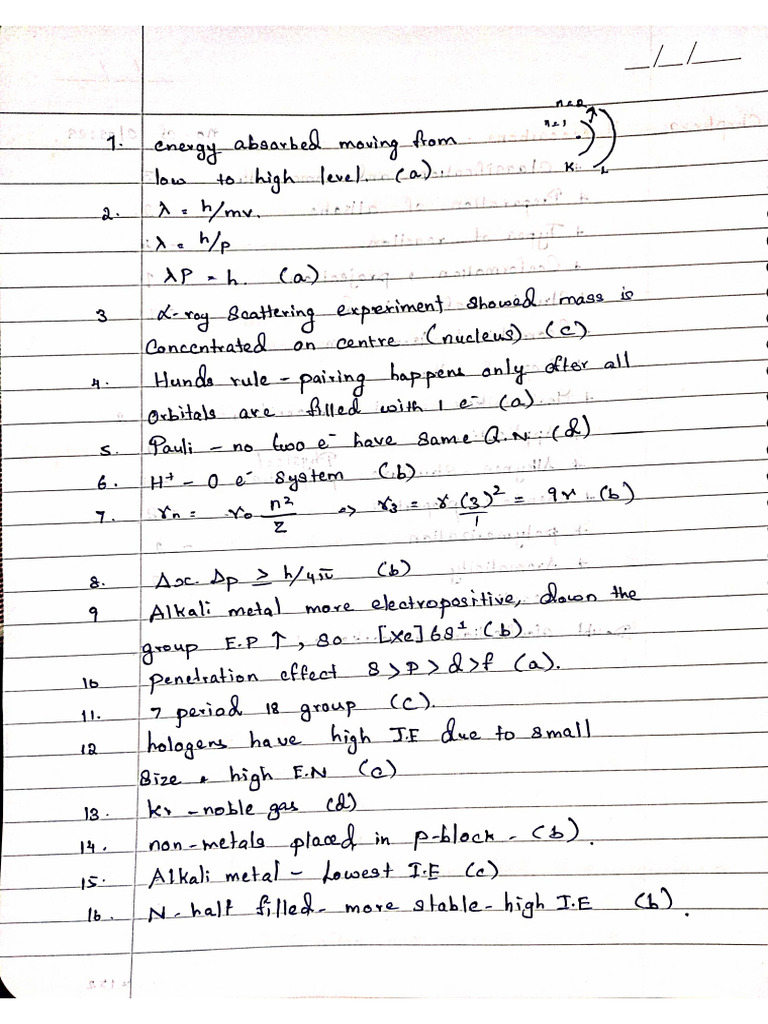 _/_/__
n=2
n=1
K L
1. energy absorbed moving from
low to high level. (a).
2. λ = h/mv.
λ = h/p
λP = h. (a)
3 α-ray scattering experiment showed mass is
concentrated on centre (nucleus) (c)
4. Hunds rule - pairing happens only after all
orbitals are filled with 1 e⁻ (a)
5. Pauli - no two e⁻ have same Q.N. (d)
6. H⁺ - 0 e⁻ system (b)
7. rn = r₀ n²/Z ⇒ r₃ = r (3)²/1 = 9r (b)
8. Δx. Δp ≥ h/4π (b)
9 Alkali metal more electropositive, down the
group E.P ↑, so [Xe] 6s¹ (b).
10 penetration effect s > p > d > f (a).
11. 7 period 18 group (c).
12 halogens have high I.E due to small
size & high E.N (c)
13. Kr - noble gas (d)
14. non-metals placed in p-block - (b).
15. Alkali metal - Lowest I.E (c)
16. N- half filled - more stable - high I.E (b).